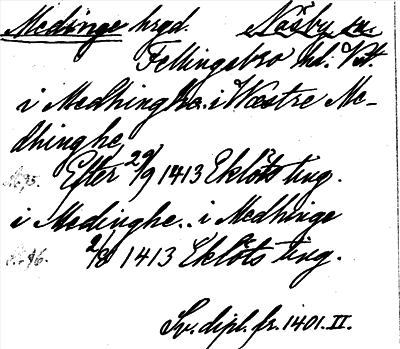 Medinge hrgd. Näsby sn.
Fellingsbro hd. Vstm.
i Medhinghe. i Wæstre Me-
dhinghe
Efter 29/9 1413 Eklöts ting.
i Medinghe.. i Medhinge
1413 Eklöts ting.
Sv. dipl. fr. 1401. II.